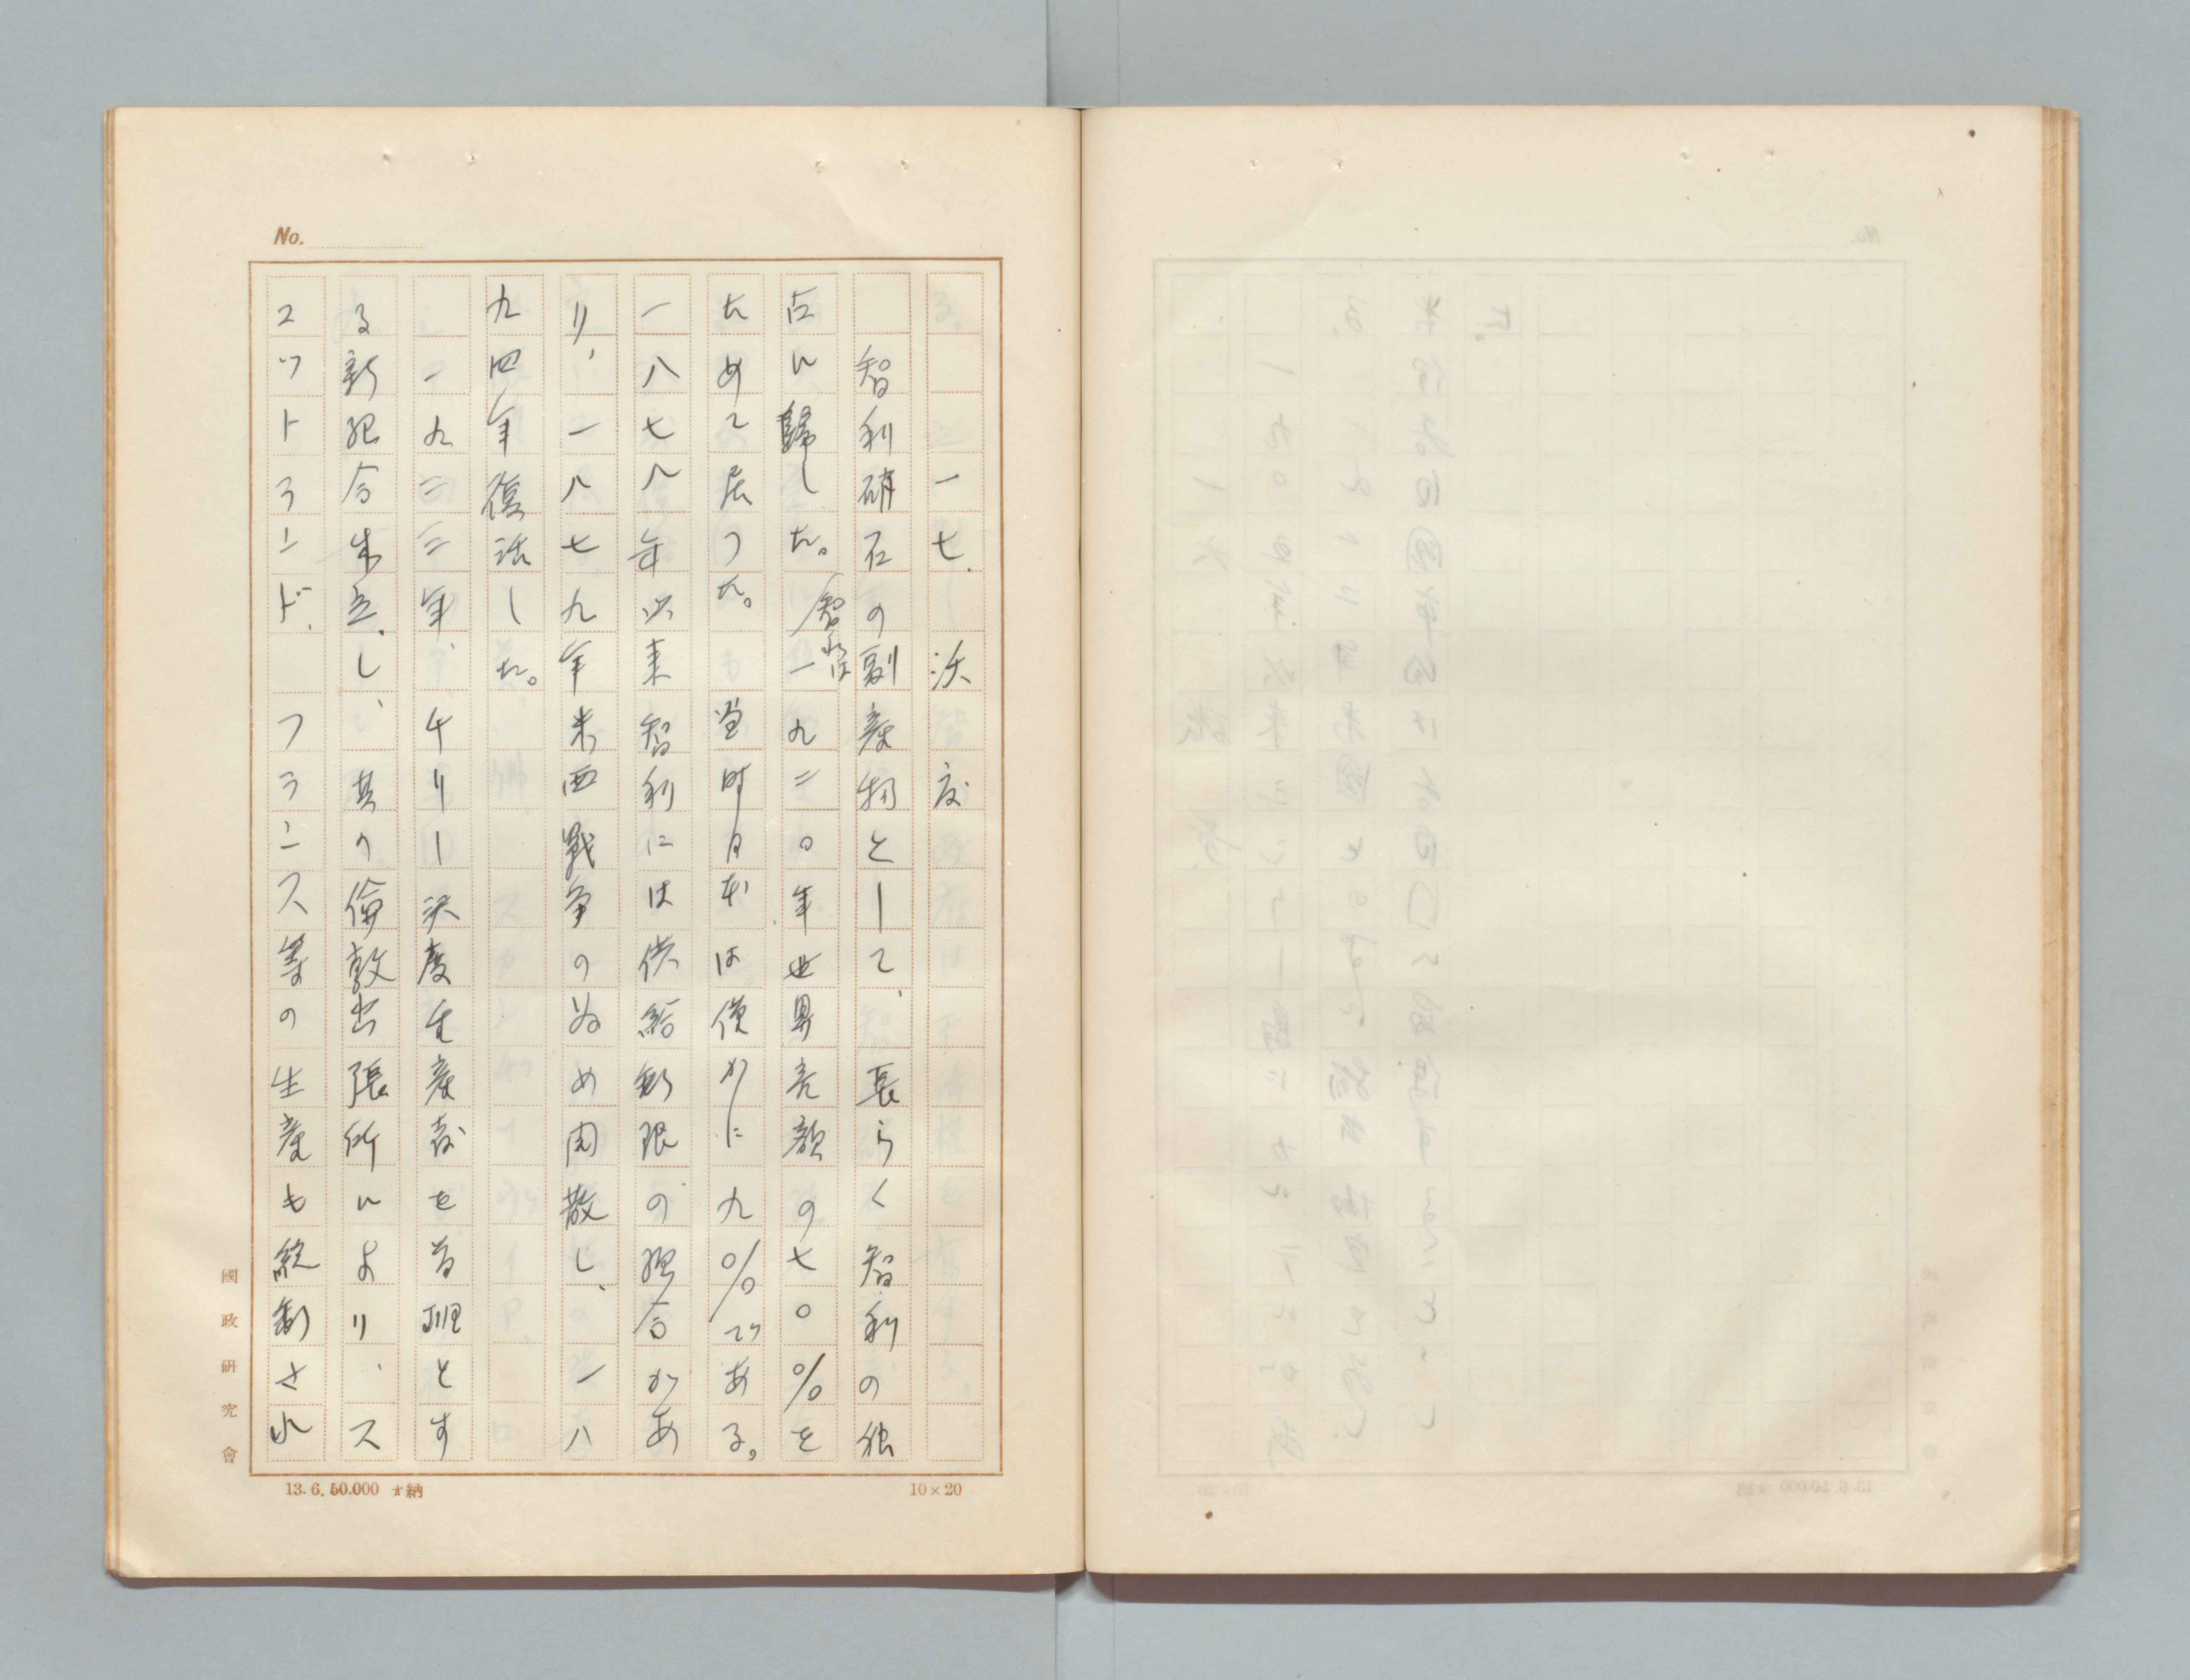 No.
一七、沃度
智利硝石の副産物として、長らく智利の独
占に歸した。智利は一九二〇年世界産額の七〇%を
占めて居つた。当時日本は僅かに九%である。
一八七八年以来智利には供給制限の組合があ
り、一八七九年米西戰争の為め開散し、一八
九四年復活した。
一九三三年、チリー沃度生産者を首班とす
る新組合生立し、其の倫敦出張所により、ス
コツトランド、フランス等の生産も統制され
國政研究會
13.6.50.000 才納
10×20